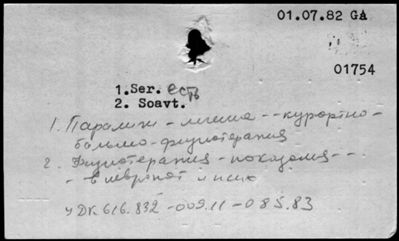 01.07.82 GA
01754
1.Ser. есть
2. Soavt.
1. Параличи - лечение -- курортно-
больно-физиотерапия
2. Физиотерапия - показания --
- в невропат
УДК 616.832 -009.11 -085.83